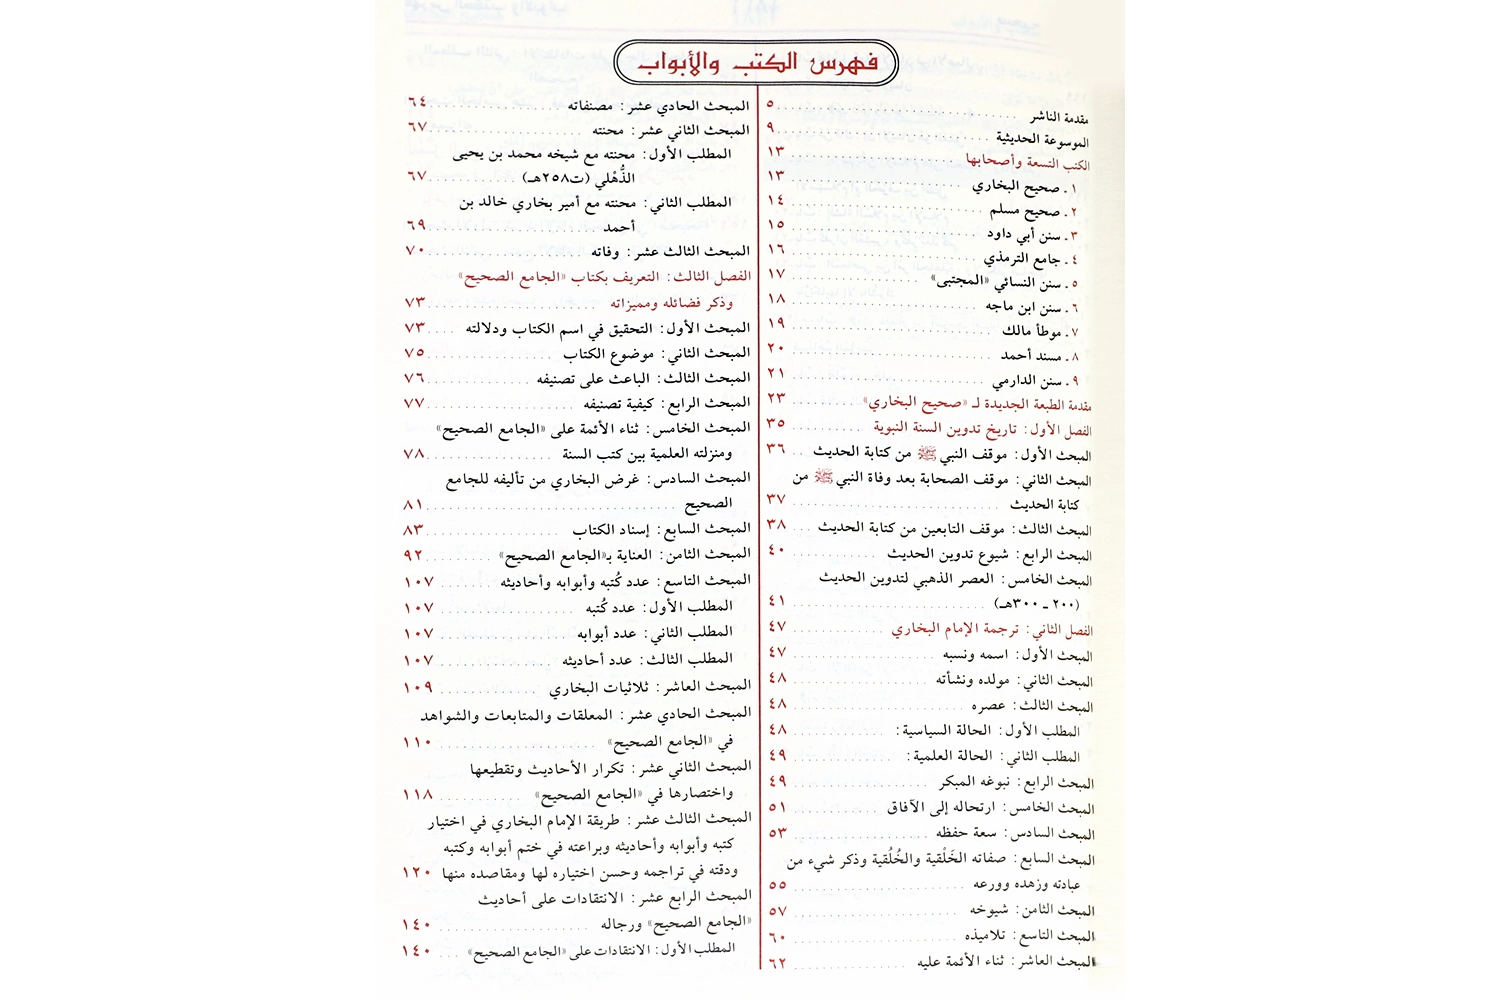 فهرس الكتب والأبواب
مقدمة الناشر ٥
الموسوعة الحديثية ٩
الكتب التسعة وأصحابها ١٣
١ ـ صحيح البخاري ١٣
٢ ـ صحيح مسلم ١٤
٣ ـ سنن أبي داود ١٥
٤ ـ جامع الترمذي ١٦
٥ ـ سنن النسائي «المجتبى» ١٧
٦ ـ سنن ابن ماجه ١٨
٧ ـ موطأ مالك ١٩
٨ ـ مسند أحمد ٢٠
٩ ـ سنن الدارمي ٢١
مقدمة الطبعة الجديدة لـ «صحيح البخاري» ٢٣
الفصل الأول: تاريخ تدوين السنة النبوية ٣٥
المبحث الأول: موقف النبي ﷺ من كتابة الحديث ٣٦
المبحث الثاني: موقف الصحابة بعد وفاة النبي ﷺ من
كتابة الحديث ٣٧
المبحث الثالث: موقف التابعين من كتابة الحديث ٣٨
المبحث الرابع: شيوع تدوين الحديث ٤٠
المبحث الخامس: العصر الذهبي لتدوين الحديث
(٢٠٠ ـ ٣٠٠هـ) ٤١
الفصل الثاني: ترجمة الإمام البخاري ٤٧
المبحث الأول: اسمه ونسبه ٤٧
المبحث الثاني: مولده ونشأته ٤٨
المبحث الثالث: عصره ٤٨
المطلب الأول: الحالة السياسية: ٤٨
المطلب الثاني: الحالة العلمية: ٤٩
المبحث الرابع: نبوغه المبكر ٤٩
المبحث الخامس: ارتحاله إلى الآفاق ٥١
المبحث السادس: سعة حفظه ٥٣
المبحث السابع: صفاته الخَلْقية والخُلُقية وذكر شيء من
عبادته وزهده وورعه ٥٥
المبحث الثامن: شيوخه ٥٧
المبحث التاسع: تلاميذه ٦٠
المبحث العاشر: ثناء الأئمة عليه ٦٢
المبحث الحادي عشر: مصنفاته ٦٤
المبحث الثاني عشر: محنته ٦٧
المطلب الأول: محنته مع شيخه محمد بن يحيى
الذُّهْلي (ت٢٥٨هـ) ٦٧
المطلب الثاني: محنته مع أمير بخاري خالد بن
أحمد ٦٩
المبحث الثالث عشر: وفاته ٧٠
الفصل الثالث: التعريف بكتاب «الجامع الصحيح»
وذكر فضائله ومميزاته ٧٣
المبحث الأول: التحقيق في اسم الكتاب ودلالته ٧٣
المبحث الثاني: موضوع الكتاب ٧٥
المبحث الثالث: الباعث على تصنيفه ٧٦
المبحث الرابع: كيفية تصنيفه ٧٧
المبحث الخامس: ثناء الأئمة على «الجامع الصحيح»
ومنزلته العلمية بين كتب السنة ٧٨
المبحث السادس: غرض البخاري من تأليفه للجامع
الصحيح ٨١
المبحث السابع: إسناد الكتاب ٨٣
المبحث الثامن: العناية بـ«الجامع الصحيح» ٩٢
المبحث التاسع: عدد كُتبه وأبوابه وأحاديثه ١٠٧
المطلب الأول: عدد كُتبه ١٠٧
المطلب الثاني: عدد أبوابه ١٠٧
المطلب الثالث: عدد أحاديثه ١٠٧
المبحث العاشر: ثلاثيات البخاري ١٠٩
المبحث الحادي عشر: المعلقات والمتابعات والشواهد
في «الجامع الصحيح» ١١٠
المبحث الثاني عشر: تكرار الأحاديث وتقطيعها
واختصارها في «الجامع الصحيح» ١١٨
المبحث الثالث عشر: طريقة الإمام البخاري في اختيار
كتبه وأبوابه وأحاديثه وبراعته في ختم أبوابه وكتبه
ودقته في تراجمه وحسن اختياره لها ومقاصده منها ١٢٠
المبحث الرابع عشر: الانتقادات على أحاديث
«الجامع الصحيح» ورجاله ١٤٠
المطلب الأول: الانتقادات على «الجامع الصحيح» ١٤٠